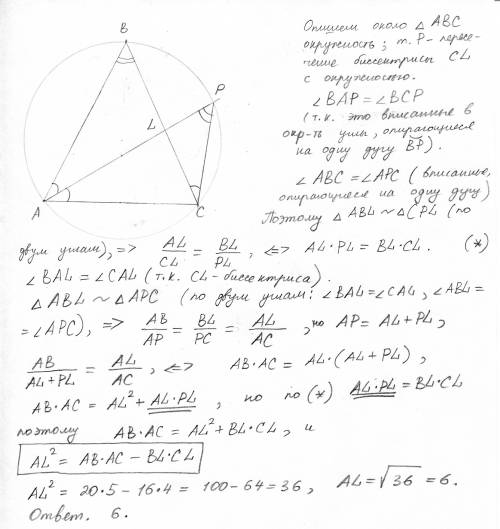 B
P
L
A
C
Опишем около △ ABC
окружность; т. P - пересе-
чение биссектрисы CL
с окружностью.
∠BAP = ∠BCP
(т.к. это вписанные в
окр-ть углы, опирающиеся
на одну дугу BP).
∠ ABC = ∠APC (вписанные,
опирающиеся на одну дугу)
Поэтому △ ABL ~ △CPL (по
двум углам), => AL/CL = BL/PL, <=> AL·PL = BL·CL. (*)
∠BAL = ∠CAL (т.к. CL - биссектриса).
△ ABL ~ △ APC (по двум углам: ∠BAL = ∠CAL, ∠ABL =
= ∠APC), => AB/AP = BL/PC = AL/AC, но AP = AL + PL,
AB/(AL + PL) = AL/AC, <=> AB·AC = AL·(AL + PL),
AB·AC = AL² + AL·PL, но по (*) AL·PL = BL·CL
поэтому AB·AC = AL² + BL·CL, и
AL² = AB·AC − BL·CL
AL² = 20·5 − 16·4 = 100 − 64 = 36, AL = √36 = 6.
Ответ. 6.